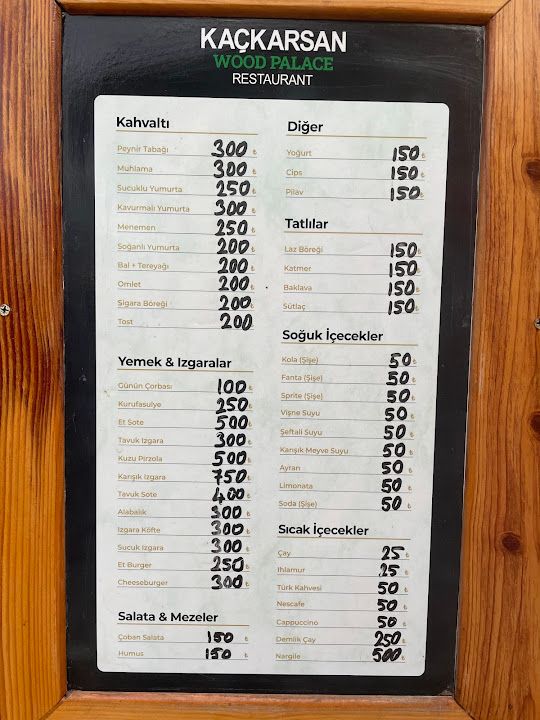 KAÇKARSAN
WOOD PALACE
RESTAURANT
Kahvaltı
Peynir Tabağı 300 ₺
Muhlama 300 ₺
Sucuklu Yumurta 250 ₺
Kavurmalı Yumurta 300 ₺
Menemen 250 ₺
Soğanlı Yumurta 200 ₺
Bal + Tereyağı 200 ₺
Omlet 200 ₺
Sigara Böreği 200 ₺
Tost 200
Yemek & Izgaralar
Günün Çorbası 100 ₺
Kurufasulye 250 ₺
Et Sote 500 ₺
Tavuk Izgara 300 ₺
Kuzu Pirzola 500 ₺
Karışık Izgara 750 ₺
Tavuk Sote 400 ₺
Alabalık 300 ₺
Izgara Köfte 300 ₺
Sucuk Izgara 300 ₺
Et Burger 250 ₺
Cheeseburger 300 ₺
Salata & Mezeler
Çoban Salata 150 ₺
Humus 150 ₺
Diğer
Yoğurt 150 ₺
Cips 150 ₺
Pilav 150 ₺
Tatlılar
Laz Böreği 150 ₺
Katmer 150 ₺
Baklava 150 ₺
Sütlaç 150 ₺
Soğuk İçecekler
Kola (Şişe) 50 ₺
Fanta (Şişe) 50 ₺
Sprite (Şişe) 50 ₺
Vişne Suyu 50 ₺
Şeftali Suyu 50 ₺
Karışık Meyve Suyu 50 ₺
Ayran 50 ₺
Limonata 50 ₺
Soda (Şişe) 50 ₺
Sıcak İçecekler
Çay 25 ₺
Ihlamur 25 ₺
Türk Kahvesi 50 ₺
Nescafe 50 ₺
Cappuccino 50 ₺
Demlik Çay 250 ₺
Nargile 500 ₺